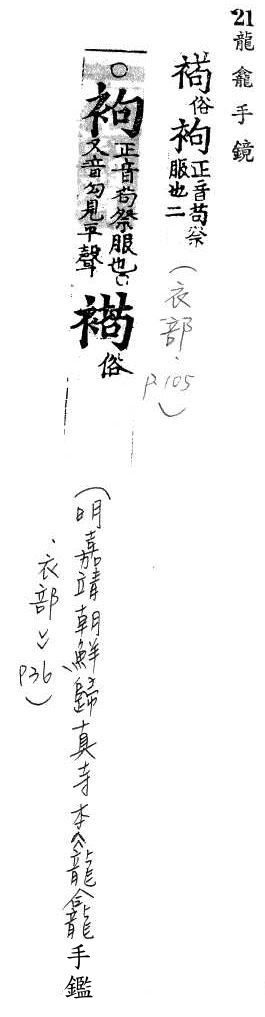 21龍龕手鏡
俗袧正音苟祭
服也二
(衣部.P.105)
○袧正音苟祭服也
又音勾見平聲
俗
(明嘉靖朝鮮歸真寺本《龍龕手鑑
.衣部》P36)